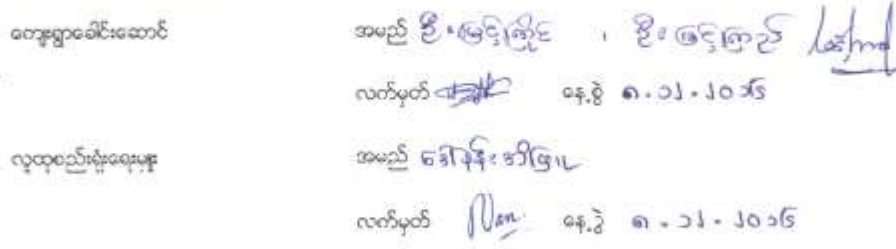 ကျေးရွာခေါင်းဆောင် အမည် ဦးမြင့်ကြိုင် ၊ ဦးမြင့်ကြည်
လက်မှတ် နေ့စွဲ ၈.၁၂.၂၀၁၆
လူထုစည်းရုံးရေးမှူး အမည် ဒေါ်နန်းအိဖြူ
လက်မှတ် Nan နေ့စွဲ ၈.၁၂.၂၀၁၆